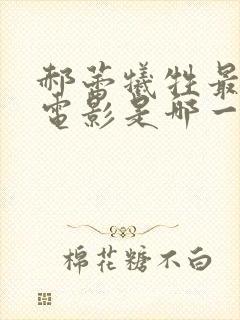 郝蕾犧牲最
電影是哪一
棉花糖不白